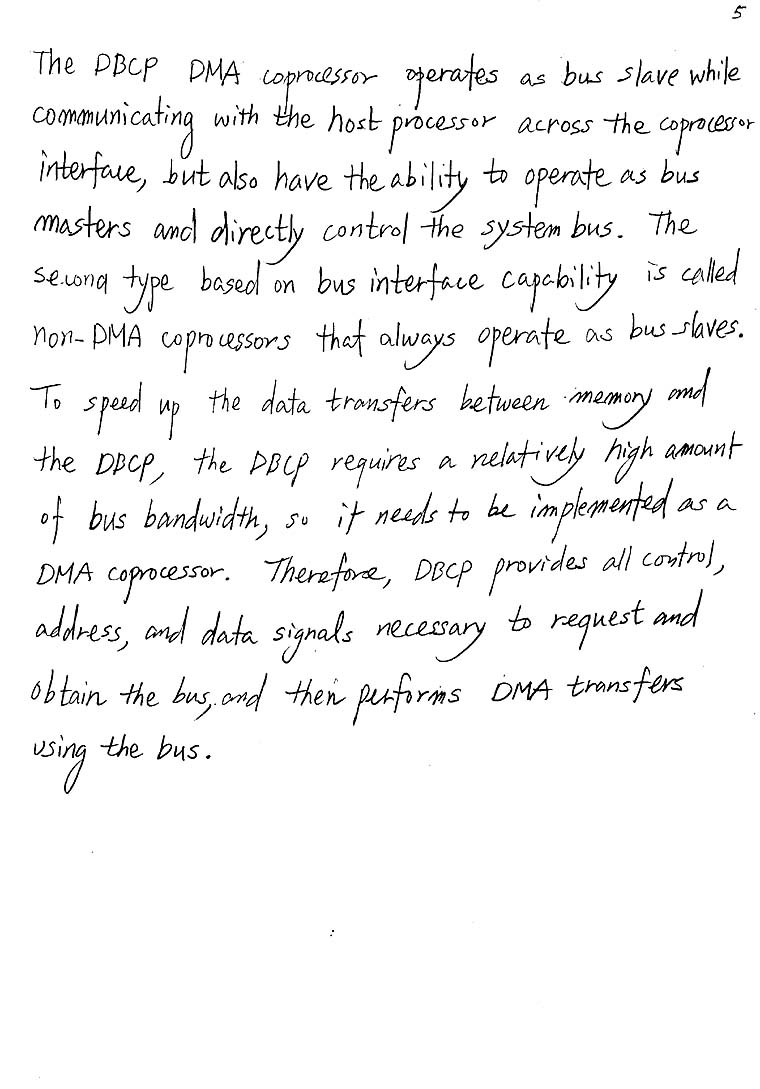 5
The DBCP DMA coprocessor operates as bus slave while
communicating with the host processor across the coprocessor
interface, but also have the ability to operate as bus
masters and directly control the system bus. The
second type based on bus interface capability is called
non-DMA coprocessors that always operate as bus slaves.
To speed up the data transfers between memory and
the DBCP, the DBCP requires a relatively high amount
of bus bandwidth, so it needs to be implemented as a
DMA coprocessor. Therefore, DBCP provides all control,
address, and data signals necessary to request and
obtain the bus, and then performs DMA transfers
using the bus.